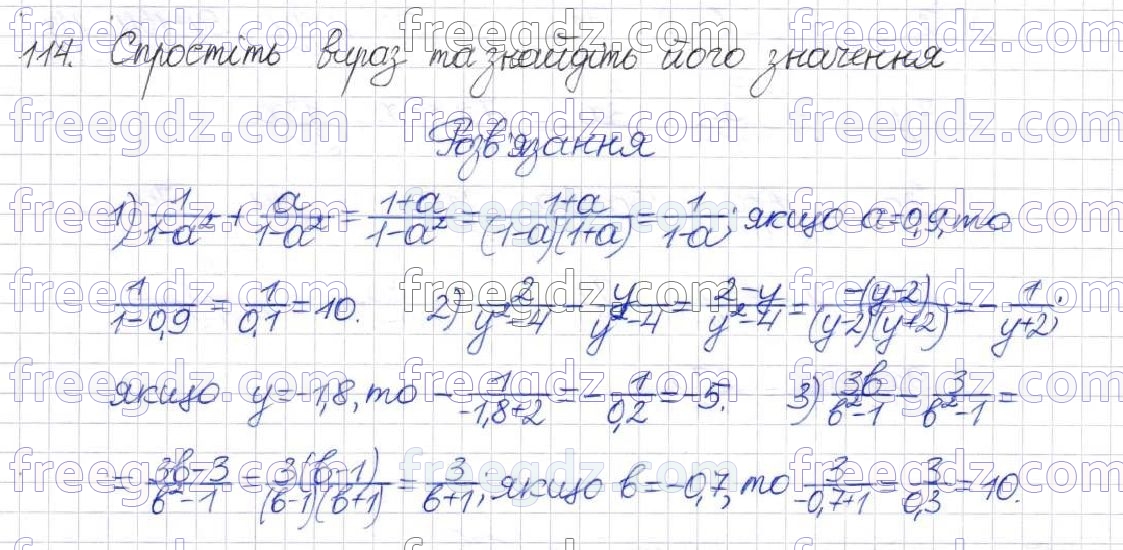 114. Спростіть вираз та знайдіть його значення
Розв'язання
1) 1/(1-a²) + a/(1-a²) = (1+a)/(1-a²) = (1+a)/((1-a)(1+a)) = 1/(1-a); якщо a=0,9, то
1/(1-0,9) = 1/0,1 = 10. 2) 2/(y²-4) - y/(y²-4) = (2-y)/(y²-4) = -(y-2)/((y-2)(y+2)) = - 1/(y+2);
якщо y=-1,8, то - 1/(-1,8+2) = - 1/0,2 = -5. 3) 3в/(в²-1) - 3/(в²-1) =
= (3в-3)/(в²-1) = 3(в-1)/((в-1)(в+1)) = 3/(в+1), якщо в=-0,7, то 3/(-0,7+1) = 3/0,3 = 10.
freegdz.com